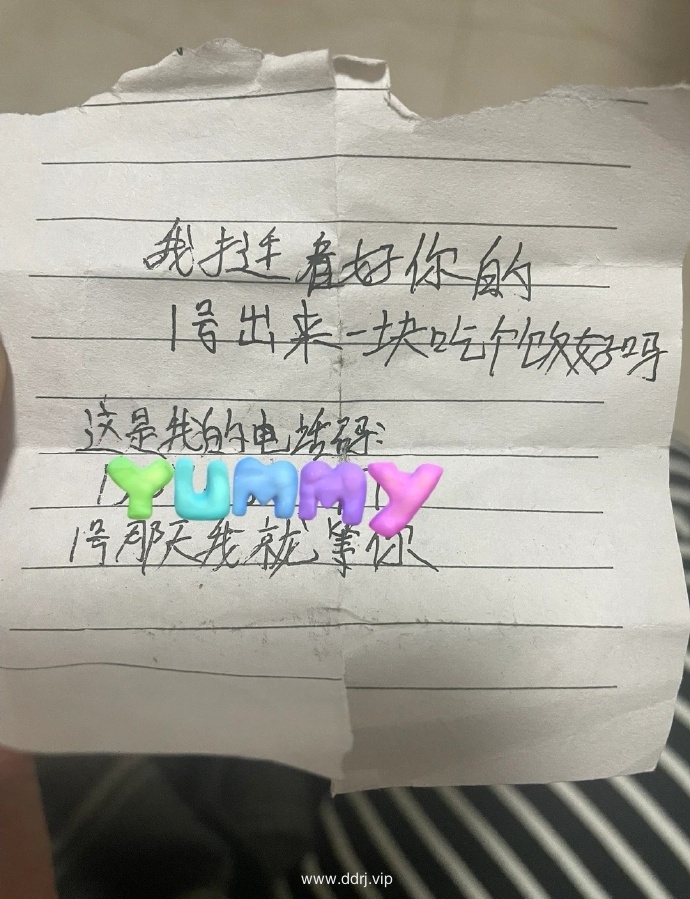 我挺看好你的
1号出来一块吃个饭好吗
这是我的电话码:
YUMMY
1号那天我就等你
www.ddrj.vip